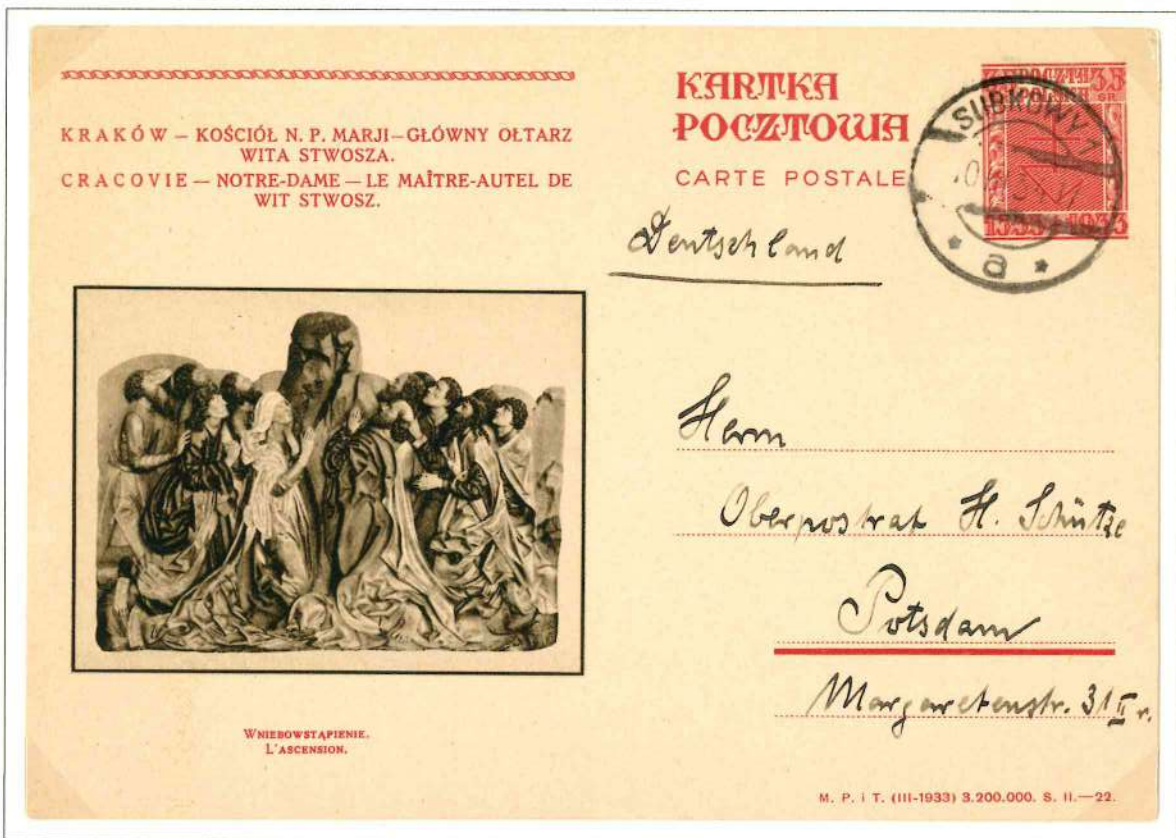 KRAKÓW – KOŚCIÓŁ N. P. MARJI – GŁÓWNY OŁTARZ
WITA STWOSZA.
CRACOVIE – NOTRE-DAME – LE MAÎTRE-AUTEL DE
WIT STWOSZ.
WNIEBOWSTĄPIENIE.
L'ASCENSION.
KARTKA
POCZTOWA
CARTE POSTALE
POCZTA 35
GR.
1533 1933
SUBKOWY 1
* a *
Deutschland
Herrn
Oberpostrat H. Schütze
Potsdam
Margaretenstr. 31 II r.
M. P. i T. (III-1933) 3.200.000. S. II.—22.